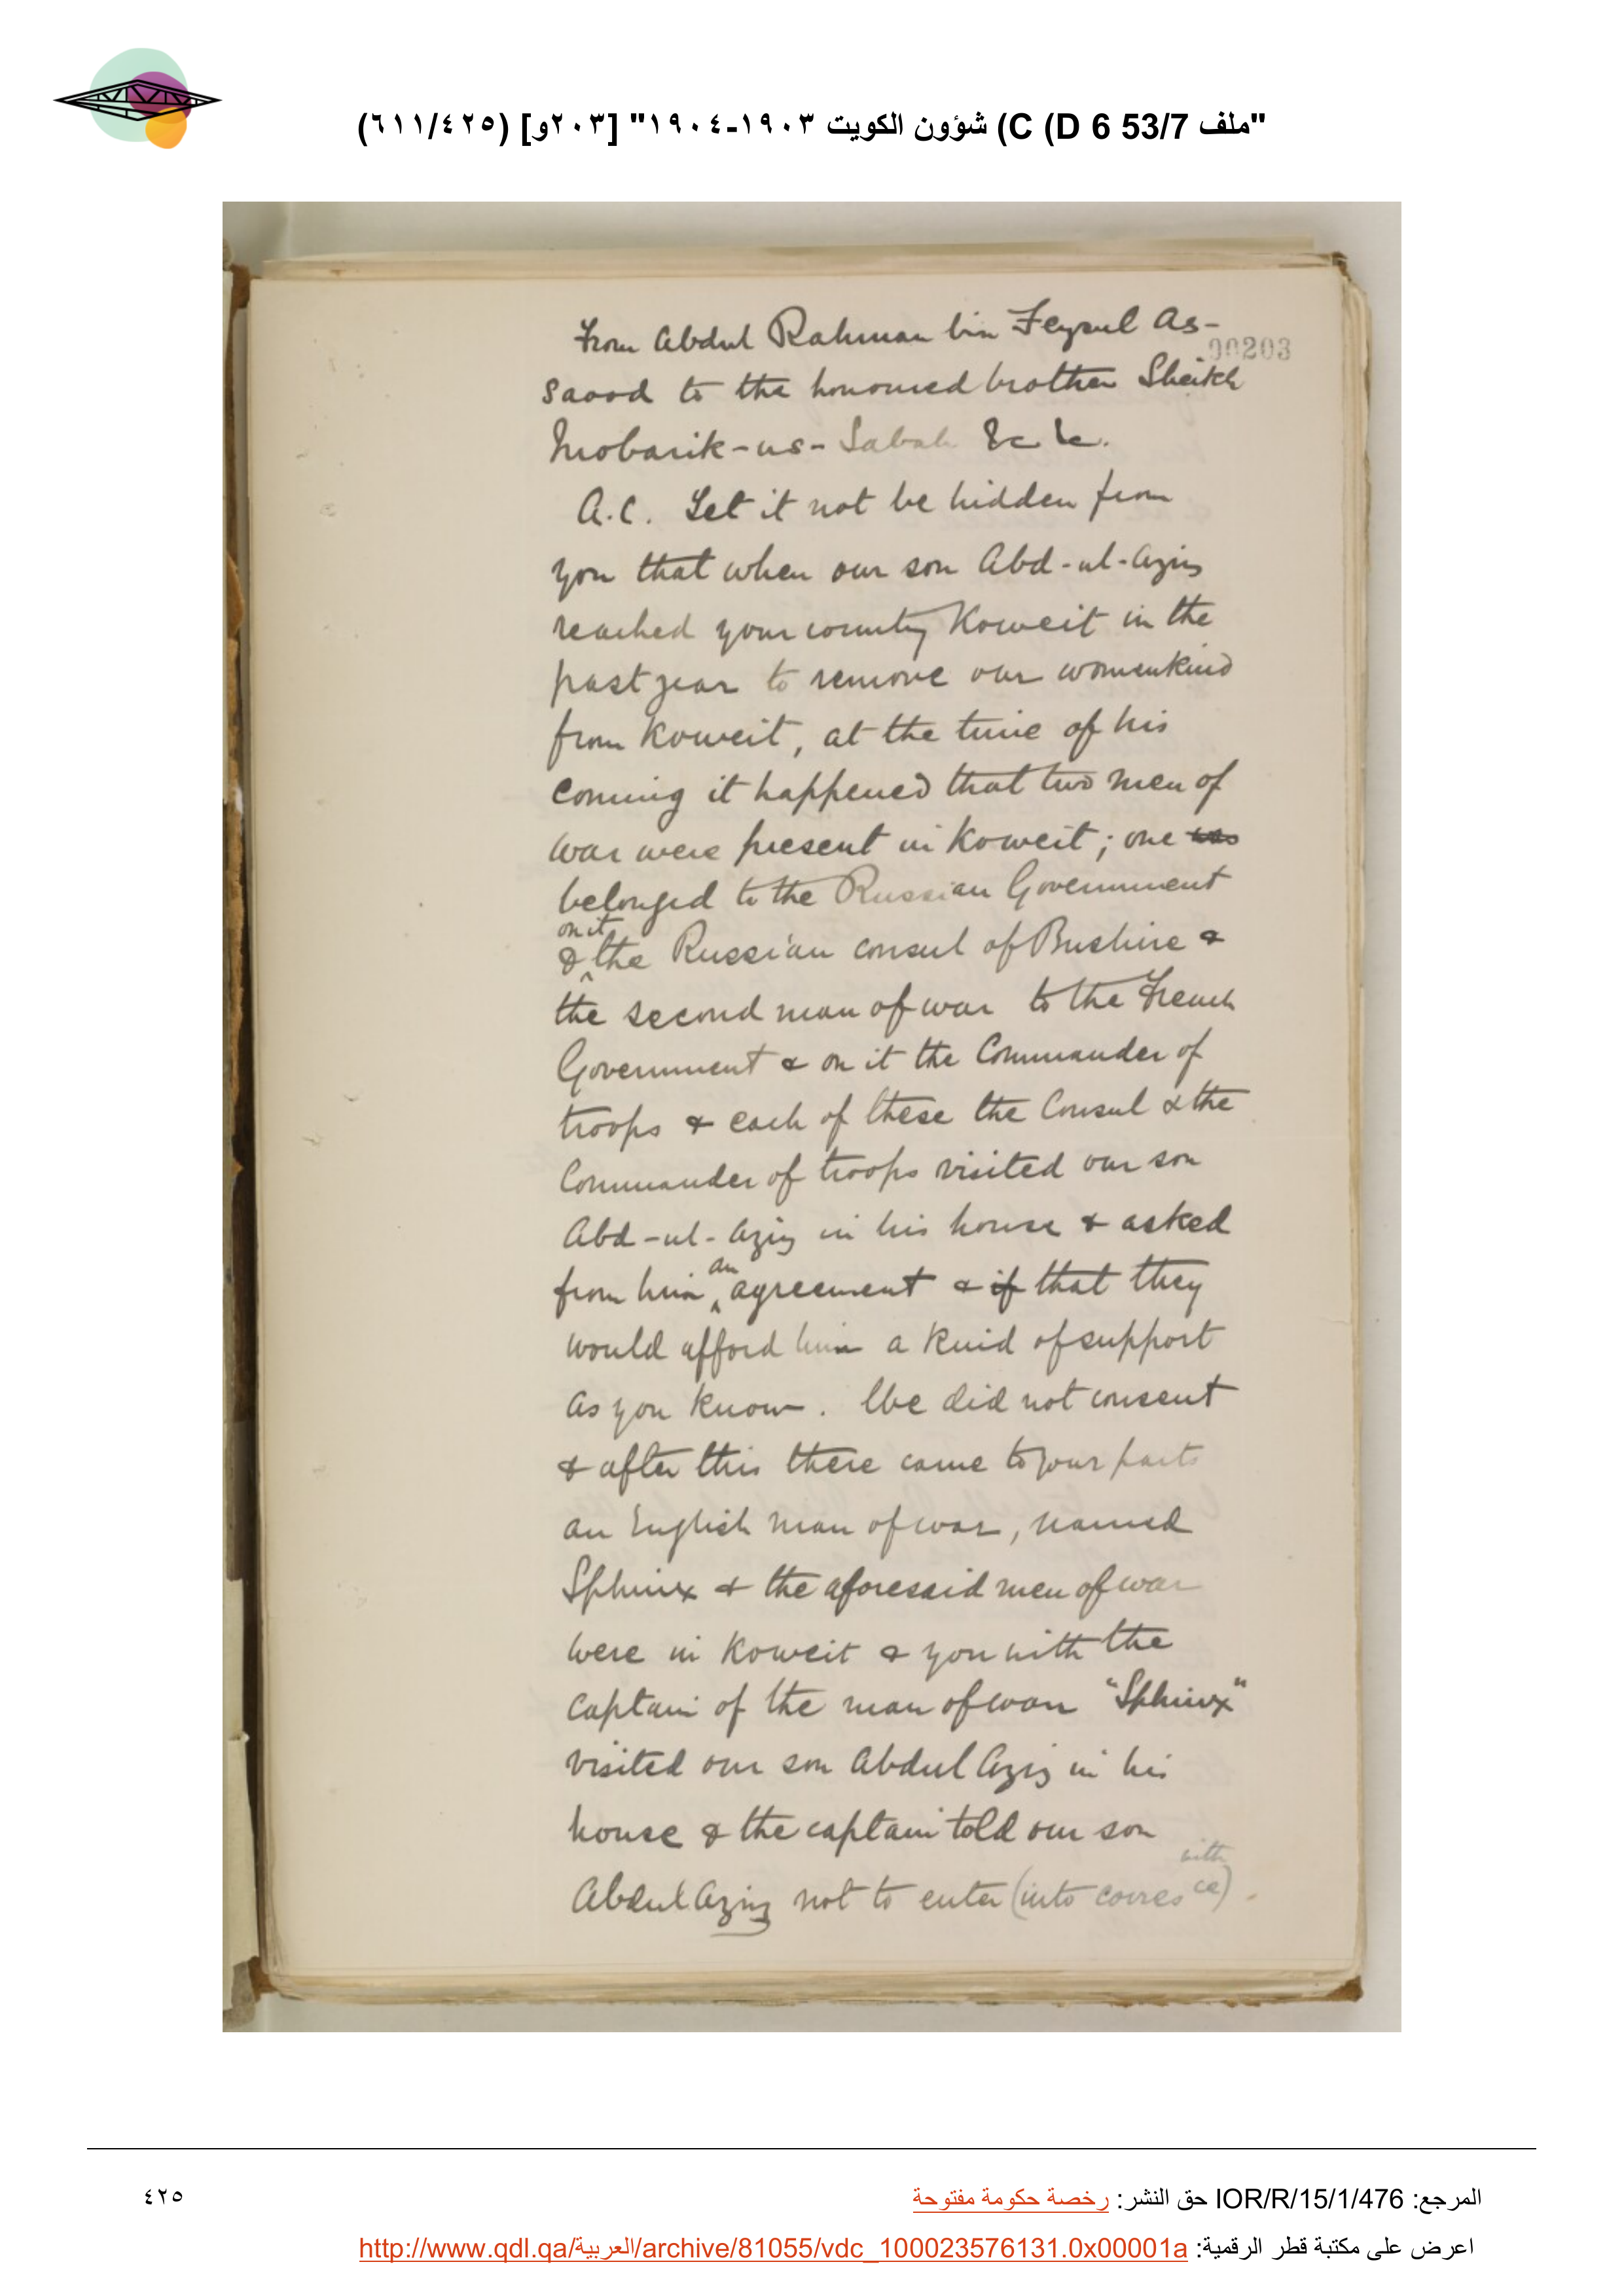 "ملف 53/7 D 6) C) شؤون الكويت ١٩٠٣-١٩٠٤" [٢٠٣و] (٦١١/٤٢٥)
From Abdul Rahman bin Feysul As-
00203
Saood to the honoured brother Sheikh
Mobarik-us-Sabah &c &c.
A.C. Let it not be hidden from
you that when our son Abd-ul-Aziz
reached your country Koweit in the
past year to remove our womenkind
from Koweit, at the time of his
coming it happened that two men of
war were present in Koweit; one was
belonged to the Russian Government
& on it the Russian consul of Bushire &
the second man of war to the French
Government & on it the Commander of
troops & each of these the Consul & the
Commander of troops visited our son
Abd-ul-Aziz in his house & asked
from him an agreement & if that they
would afford him a kind of support
as you know. We did not consent
& after this there came to your parts
an English man of war, named
Sphinx & the aforesaid men of war
were in Koweit & you with the
captain of the man of war "Sphinx"
visited our son Abdul Aziz in his
house & the captain told our son
Abdul Aziz not to enter (into corresce) with.
المرجع: IOR/R/15/1/476 حق النشر: رخصة حكومة مفتوحة
٤٢٥
اعرض على مكتبة قطر الرقمية: http://www.qdl.qa/العربية/archive/81055/vdc_100023576131.0x00001a